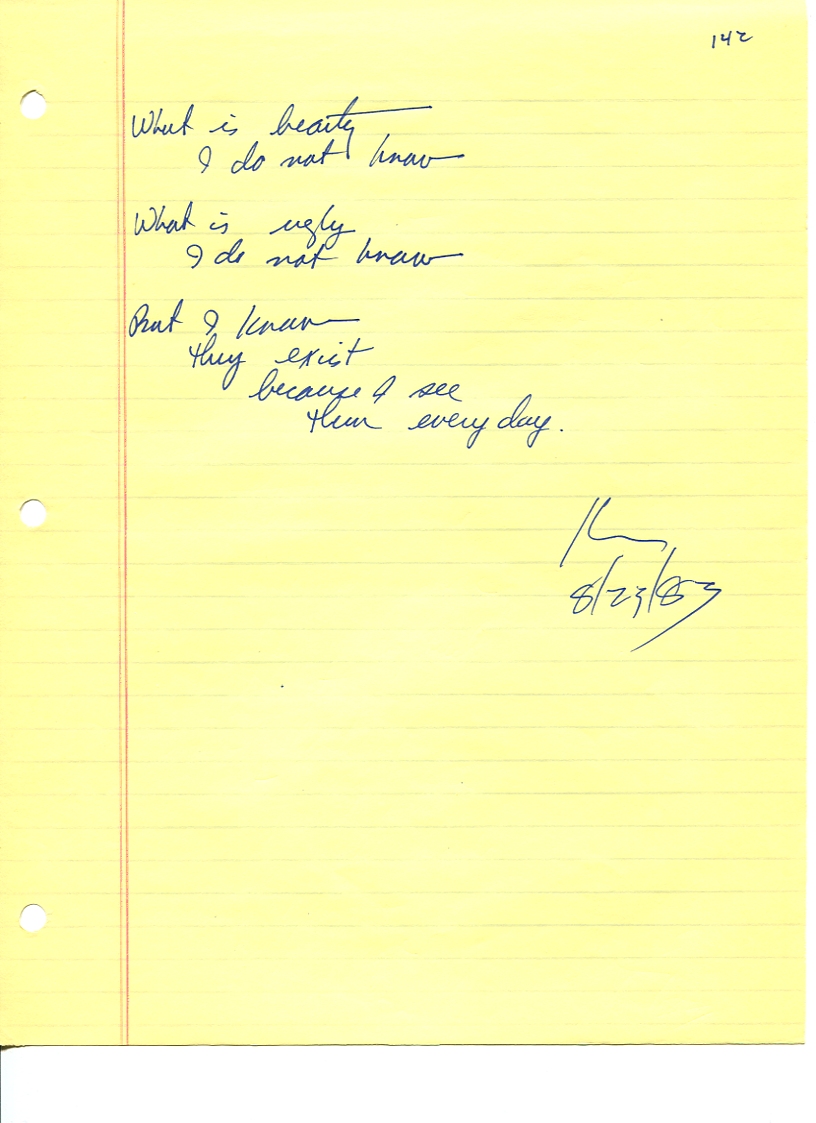 142
What is beauty
I do not know
What is ugly
I do not know
But I know
they exist
because I see
them every day.
8/23/83